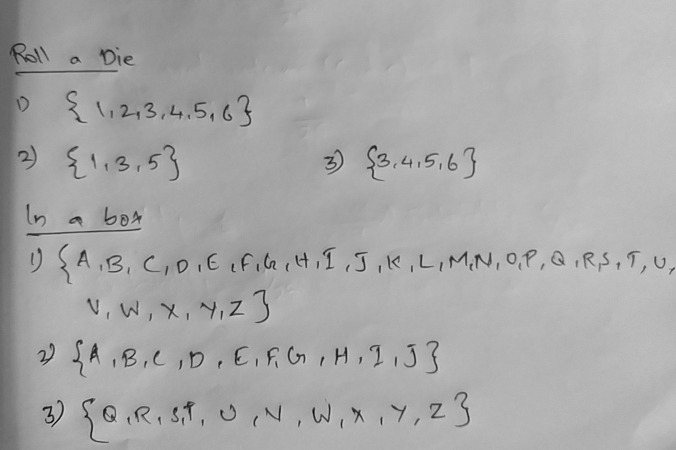 Roll a Die
1) {1,2,3,4,5,6}
2) {1,3,5} 3) {3,4,5,6}
In a box
1) {A,B,C,D,E,F,G,H,I,J,K,L,M,N,O,P,Q,R,S,T,U,
V,W,X,Y,Z}
2) {A,B,C,D,E,F,G,H,I,J}
3) {Q,R,S,T,U,V,W,X,Y,Z}